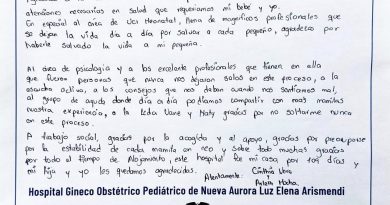 atenciones necesarias en salud que requeriamos mi bebé y yo.
En especial al área de Uci Neonatal, llena de magníficos profesionales que
se dejan la vida día a día por salvar a cada pequeño, agradezco por
haberle salvado la vida a mi pequeña.
Al área de psicología y a los excelente profesionales que tienen en ella
que fueron personas que nunca nos dejaron solas en este proceso, a la
escucha activa, a los consejos que nos daban cuando nos sentíamos mal,
al grupo de ayuda donde día a día podíamos compartir con mas mamitas
nuestra experiencia, a la Lcda Vane y Naty gracias por no soltarme nunca
en este proceso.
A trabajo social, gracias por la acogida y el apoyo, gracias por preocuparse
por la estabilidad de cada mamita en neo y sobre todo muchas gracias
por todo el tiempo de Alojamiento, este hospital fue mi casa por 102 días y
mi hija y yo les quedamos agradecidas.
Atentamente: Cinthia Vera
y
Hospital Gineco Obstétrico Pediátrico de Nueva Aurora Luz Elena Arismendi